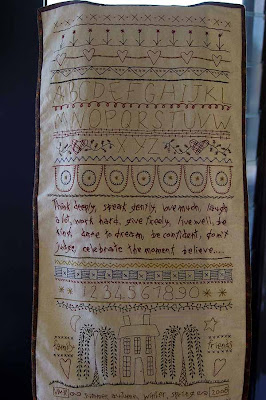 ABCDEFGHIJKL
MNOPQRSTUVW
XYZ
Think deeply, speak gently, love much, laugh
a lot, work hard, give freely, live well, be
kind, dare to dream, be confident, don't
judge, celebrate the moment, believe....
1234567890
family
friends
summer, autumn, winter, spring
2008